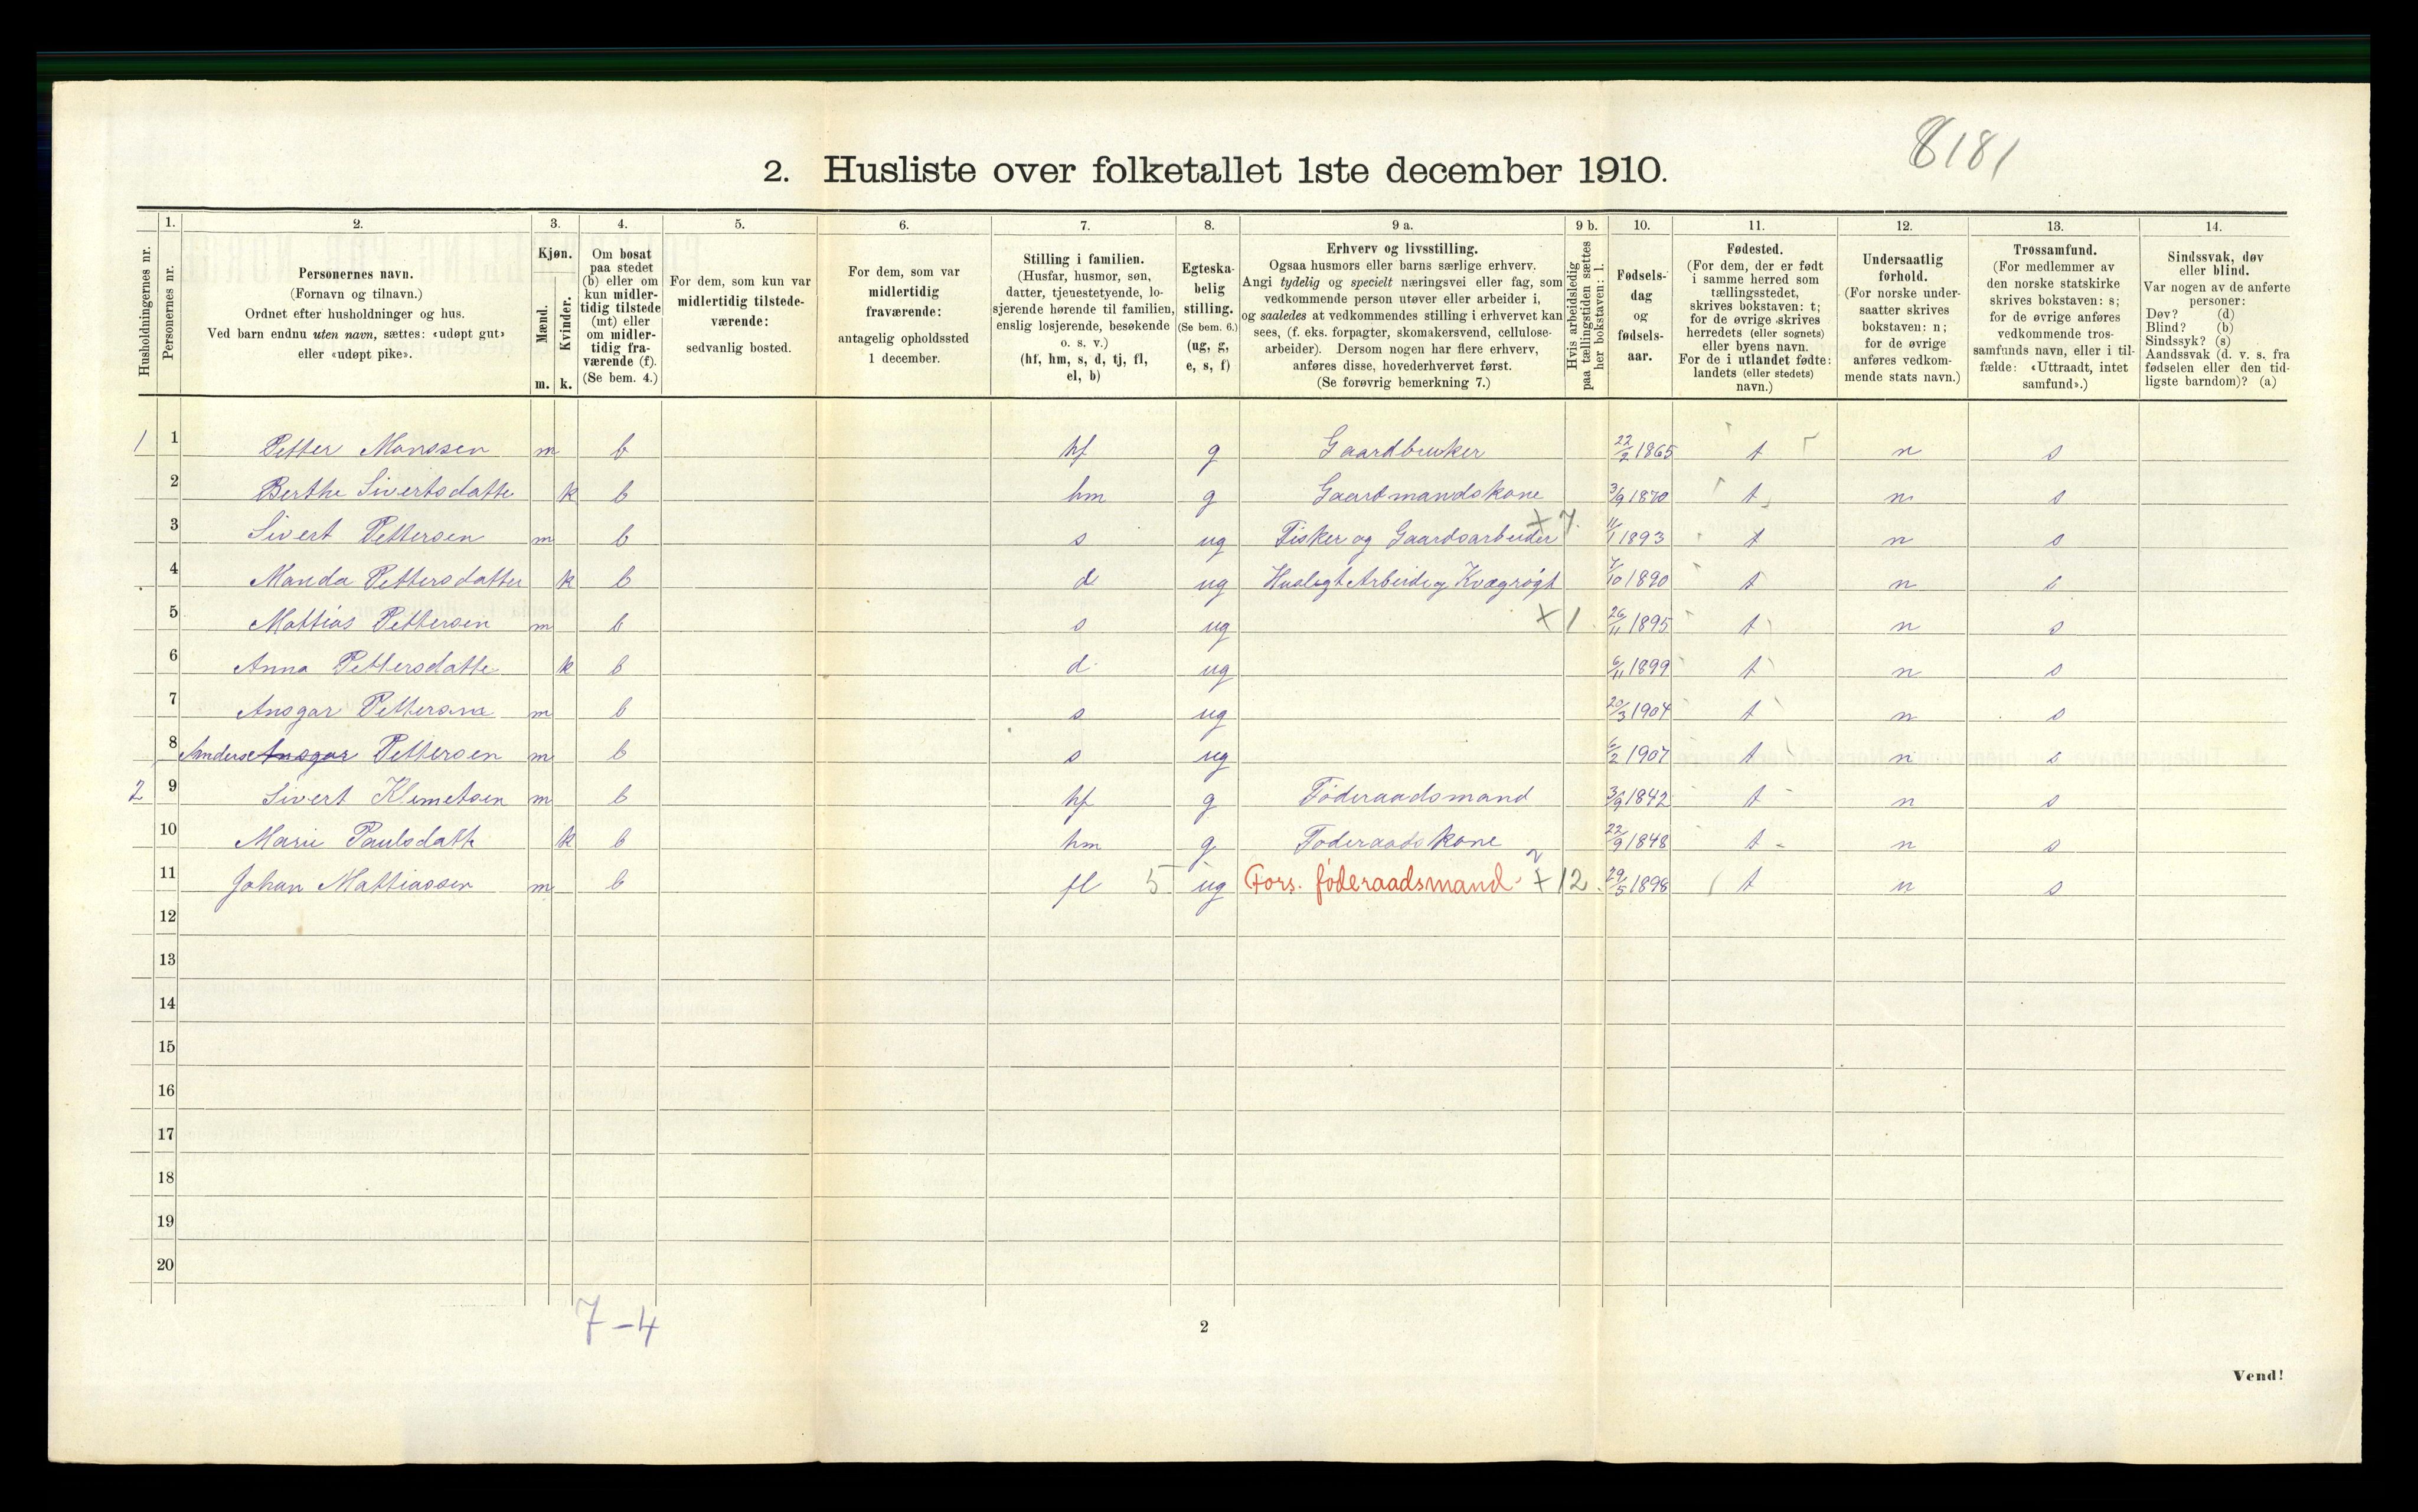 8181
2. Husliste over folketallet 1ste december 1910.
Husholdningernes nr.
1.
Personernes nr.
2.
Personernes navn.
(Fornavn og tilnavn.)
Ordnet efter husholdninger og hus.
Ved barn endnu uten navn, sættes: «udøpt gut»
eller «udøpt pike».
3.
Kjøn.
Mænd.
Kvinder.
m. k.
4.
Om bosat
paa stedet
(b) eller om
kun midler-
tidig tilstede
(mt) eller
om midler-
tidig fra-
værende (f).
(Se bem. 4.)
5.
For dem, som kun var
midlertidig tilstede-
værende:
sedvanlig bosted.
6.
For dem, som var
midlertidig
fraværende:
antagelig opholdssted
1 december.
7.
Stilling i familien.
(Husfar, husmor, søn,
datter, tjenestetyende, lo-
sjerende hørende til familien,
enslig losjerende, besøkende
o. s. v.)
(hf, hm, s, d, tj, fl,
el, b)
8.
Egteska-
belig
stilling.
(Se bem. 6.)
(ug, g,
e, s, f)
9 a.
Erhverv og livsstilling.
Ogsaa husmors eller barns særlige erhverv.
Angi tydelig og specielt næringsvei eller fag, som
vedkommende person utøver eller arbeider i,
og saaledes at vedkommendes stilling i erhvervet kan
sees, (f. eks. forpagter, skomakersvend, cellulose-
arbeider). Dersom nogen har flere erhverv,
anføres disse, hovederhvervet først.
(Se forøvrig bemerkning 7.)
9 b.
Hvis arbeidsledig
paa tællingstiden sættes
her bokstaven: l.
10.
Fødsels-
dag
og
fødsels-
aar.
11.
Fødested.
(For dem, der er født
i samme herred som
tællingsstedet,
skrives bokstaven: t;
for de øvrige skrives
herredets (eller sognets)
eller byens navn.
For de i utlandet fødte:
landets (eller stedets)
navn.)
12.
Undersaatlig
forhold.
(For norske under-
saatter skrives
bokstaven: n;
for de øvrige
anføres vedkom-
mende stats navn.)
13.
Trossamfund.
(For medlemmer av
den norske statskirke
skrives bokstaven: s;
for de øvrige anføres
vedkommende tros-
samfunds navn, eller i til-
fælde: «Uttraadt, intet
samfund».)
14.
Sindssvak, døv
eller blind.
Var nogen av de anførte
personer:
Døv? (d)
Blind? (b)
Sindssyk? (s)
Aandssvak (d. v. s. fra
fødselen eller den tid-
ligste barndom)? (a)
1 1 Petter Monssen m b hf g Gaardbruker 22/2 1865 t n s
2 Berthe Sivertsdatte k b hm g Gaardmandskone 3/9 1870 t n s
3 Sivert Pettersen m b s ug Fisker og Gaardsarbeider +7 11/1 1893 t n s
4 Manda Pettersdatter k b d ug Huslegt Arbeide og Kvægrøgt 7/10 1890 t n s
5 Mattias Pettersen m b s ug +1 26/11 1895 t n s
6 Anna Pettersdatte k b d ug 6/11 1899 t n s
7 Ansgar Pettersne m b s ug 20/3 1904 t n s
8 Anders Ansgar Pettersen m b s ug 6/2 1907 t n s
2 9 Sivert Klemetsen m b hf g Føderaadsmand 3/9 1842 t n s
10 Marie Paulsdatt k b hm g Foderaadskone 22/9 1848 t n s
11 Johan Mattiassen m b fl 5 ug Fors. føderaadsmand +12 29/5 1898 t n s
12
13
14
15
16
17
18
19
20
7-4
2
Vend!